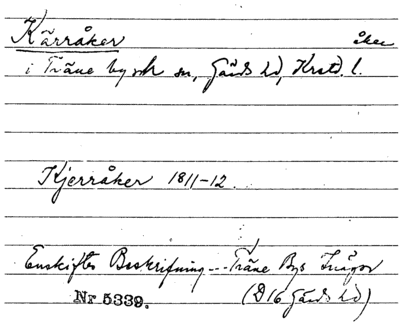 Kärråker åker
i Träne by och sn, Gärds hd, Krstd. l.
Kjerråker 1811-12.
Enskiftes Beskrifning --- Träne Bys Inägor
Nr 5339. (D 16 Gärds hd)